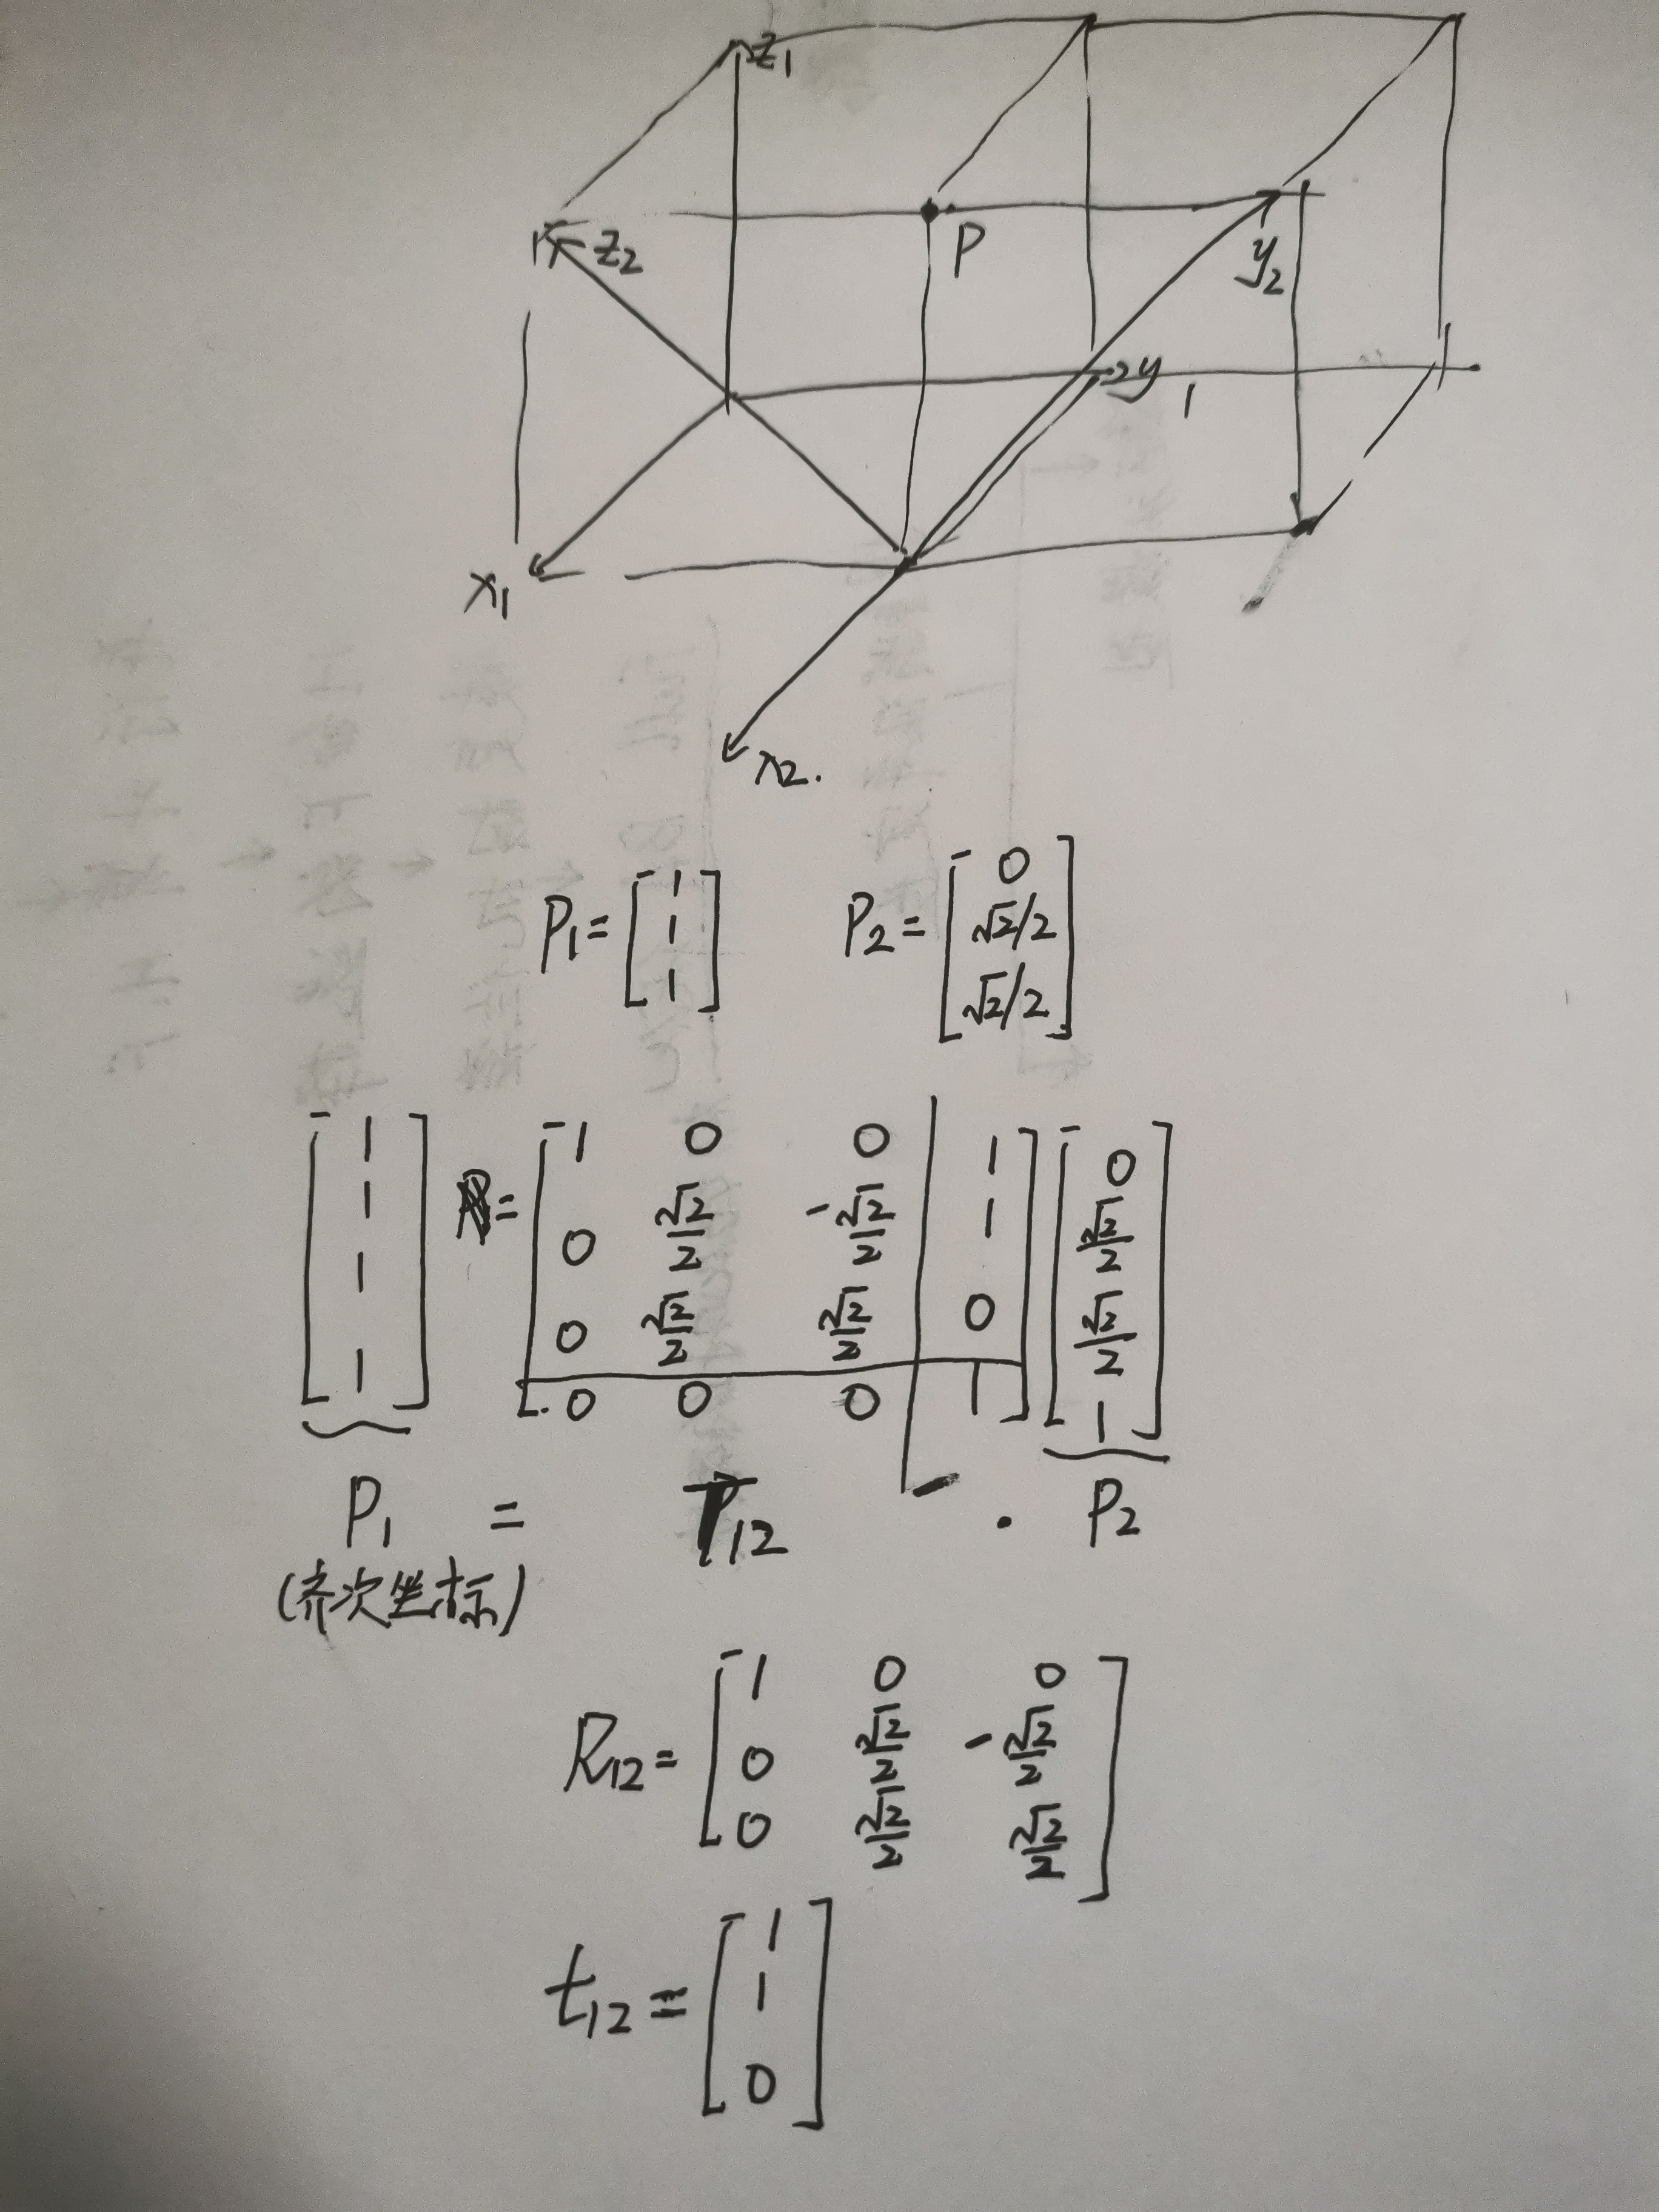 z₁
z₂
P
y₂
y₁
x₁
x₂.
P₁ = [1 1 1] P₂ = [0 √2/2 √2/2]
[1 1 1 1] = [1 0 0 | 1] [0
0 √2/2 -√2/2 | 1 √2/2
0 √2/2 √2/2 | 0 √2/2
0 0 0 | 1] 1]
P₁ = T₁₂ · P₂
(齐次坐标)
R₁₂ = [1 0 0
0 √2/2 -√2/2
0 √2/2 √2/2]
t₁₂ = [1
1
0]